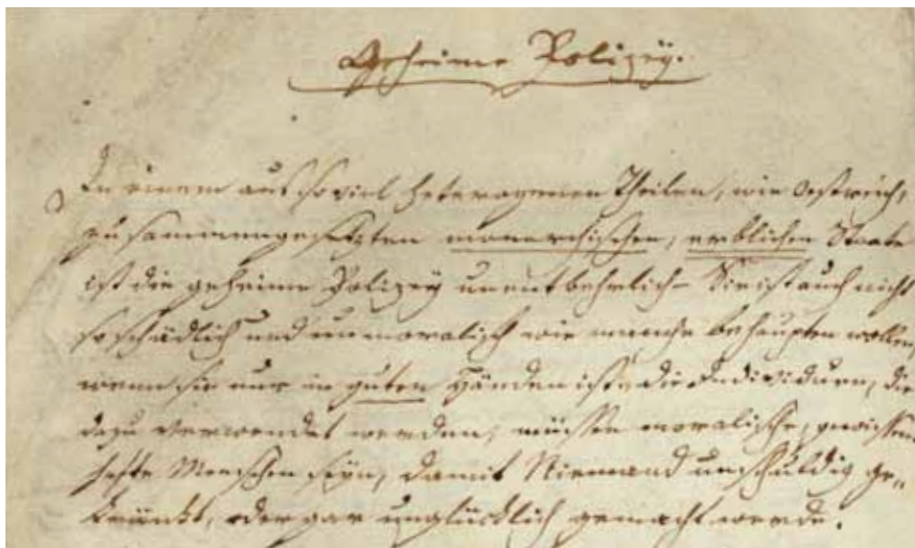 Geheime Polizey.
In einem aus so viel heterogenen Theilen, wie Oestreich,
zusammengesetzten monarchischen, erblichen Staate
ist die geheime Polizey unentbehrlich – Sie ist auch nicht
so schädlich und unmoralisch wie manche behaupten wollen,
wenn sie nur in guten Händen ist, die Individuen, die
dazu verwendet werden, müssen moralische, gewissen-
hafte Menschen seyn, damit Niemand unschuldig ge-
kränkt, oder gar unglücklich gemacht werde.